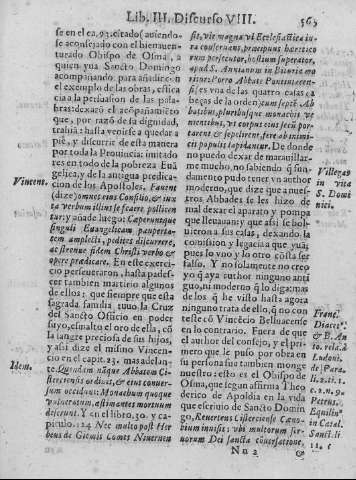 Lib. III. Discurso VIII.
se en el ca. preciitado auiendo-
se aconsejado con el bienauen-
turado Obispo de Osma, a
quien yua Sancto Domingo
acompañando. para añadir en
el exemplo de las obras, estica
cia a la persuasion de las pala-
bras: dexarõ el acõpañamiẽto
que, por razõ de la dignidad,
trahiã: hasta venirse a quedar a
pie, y discurrir de esta manera
por toda la Prouincia: imitado
res en todo de la pobreza Euã
gelica, y de la antigua predica-
cion de los Apostoles. Fauent
(dize) omnes eius Consilio, & iux
ta verbum illius se facere pollicen
tur; y añade luego: Caperuntque
singuli Euangelicam pauperta-
tem amplecti, pedites discurrere,
ac strenue fidem Christi verbo &
opere prædicare. En este exerci-
cio perseueraron, hasta pades-
cer tambien martirio algunos
de ellos; que siempre esta
sagrada familia, tuuo la Cruz
del Sancto Officio en poder
suyo, esmalto el oro de ella, cõ
la sangre preciosa de sus hijos,
y assi dize el mismo Vincen-
cio en el capit. 23. mas adelan-
te. Quendam náque Abbatem Ci-
sterciensis ordinis, & eius conuer-
sum occidunt: Monachum quoque
vulneratum, æstimantes mortuum
deserunt. Y en el libro. 30. y ca-
pitulo. 124 Nec multo post Her
beus de Giemis Comes Niuernen
Vincent.
Idem.
sis, vir magna vi Ecclesiastica iu-
ra conseruans, principum hæretico
rum persecutor, hostium superator,
apud S. Anianum in Bituria mo-
ritur. Porro Abbatia Pontiniacen-
sis es vna de las quatro casas ca
beças de la orden; cum septẽ Ab
batibus, pluribusque monachis ve
nientibus, vt corpus eius secũ por-
tarent & sepelirent, fere ab inimi-
cis populis lapidantur. De donde
no puedo dexar de marauillar-
me mucho, no sabiendo q̃ fun-
damento pudo tener vn author
moderno, que dize que a nues-
tros Abbades se les hizo de
mal dexar el aparato y pompa
que lleuauan: y que assi se bol-
uieron a sus casas, dexando la
comission y legacia que yuã;
pues lo vno y lo otro cõsta ser
falso. Y no solamente no creo
yo q̃ aya author ninguno anti
guo, ni moderno q̃ lo diga: mas
de los q̃ he visto hasta agora
ninguno trata de ello, q̃ no con
teste cõ Vincẽcio Belluacense
en lo contrario. Fuera de que
el author del consejo, y el pri-
mero que le puso por obra en
su persona fue tambien monge
nuestro: esto es el Obispo de
Osma, que segun affirma Theo
derico de Apoldia en la vida
que escriuio de Sancto Domin
go, Reuertens Cisterciense Cæno-
bium inuisit; vbi multorum ser-
uorum Dei sancta cõuersatione,
Villegas
in vita
S. Domi
nici.
Franc.
Diacet⁹.
& B. An
to. cit. à
Ludoui.
de Para.
li. 2. ti. 1.
c. 1. n. 9.
Petrus.
Equilin⁹
in Catal.
Sanct. li
Nn 2
&